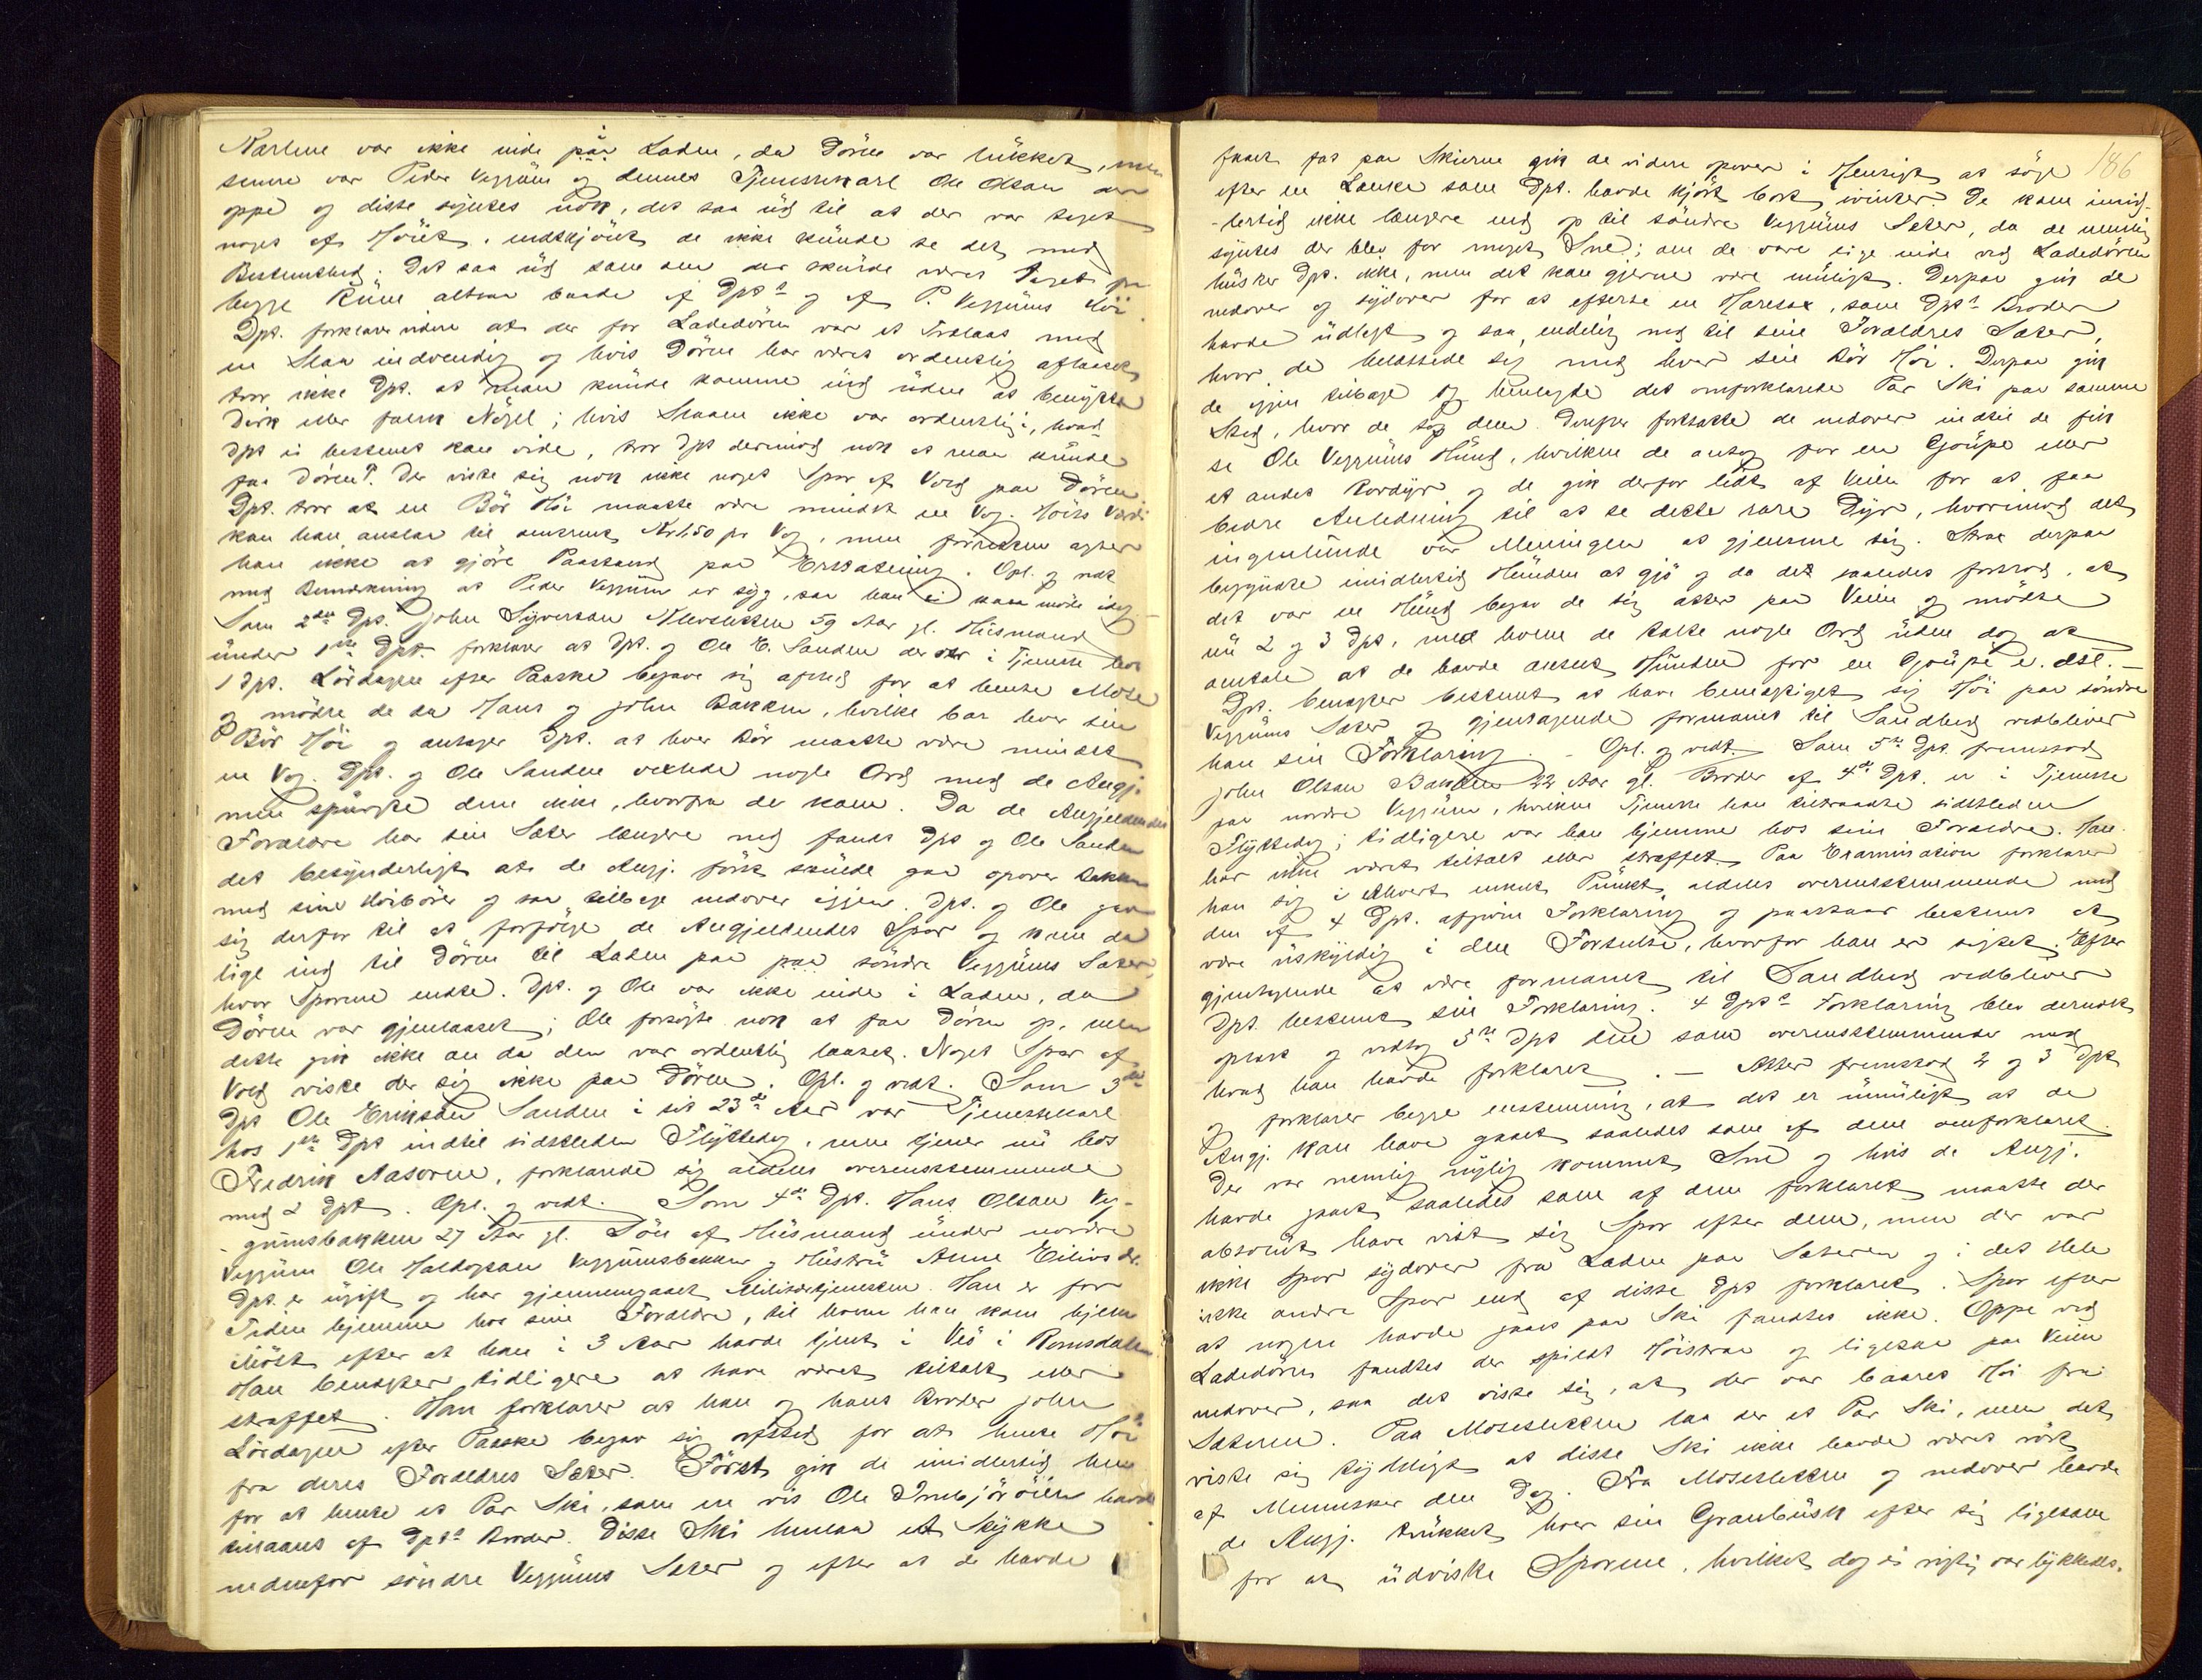 Karlene var ikke inde paa Laden, da Døren var lukket, men
senere var Peder Veggum og dennes Tjenestekarl Ole Olsen der
oppe og disse syntes nok, det saa ud til at der var taget
noget af Høiet, endskjønt de ikke kunde se det med
Bestemthed; det saa ud som om der skulde været taget fra
begge Rum altsaa baade af Dpts og af P. Veggums Høi.
Dpt. forklarer videre at der for Ladedøren var et Trælaas med
en Slaa indvendig og hvis Døren har været ordentlig aflaaset
tror ikke Dpt. at man kunde komme ind uden at benytte
Dirk eller falsk Nøgel; hvis Slaaen ikke var ordentlig i, hvad
Dpt ei bestemt kan vide, tror Dpt derimod nok at man kunde
faa Døren op. Der viste sig nok ikke noget Spor af Vold paa Døren.
Dpt. tror at en Bør Høi maatte være mindst en Vog. Høiets Værdi
kan han anslaa til omtrent Kr 1,50 pr Vog, men forresten agter
han ikke at gjøre Paastand paa Erstatning. Opl. og vedt.
med Bemærkning at Peder Veggum er syg, saa han ei kan møde idag
Som 2det Dpt. John Syversen Klevesletten 59 Aar gl. Husmand
under 1ste Dpt. forklarer at Dpt. og Ole E. Sanden der var i Tjeneste hos
1 Dpt. Lørdagen efter Paaske begave sig afsted for at hente Mose
og mødte de da Hans og John Bakken, hvilke bar hver sin
Bør Høi og antager Dpt. at hver Bør maatte være mindst
en Vog. Dpt. og Ole Sanden vexlede nogle Ord med de Angj.
men spurgte dem ikke, hvorfra de kom. Da de Angjeldendes
Forældre har sin Sæter længere ned fandt Dpt og Ole Sanden
det besynderligt at de Angj. først skulde gaa opover Bakken
med sine Høibører og saa tilbage nedover igjen. Dpt. og Ole gav
sig derfor til at forfølge de Angjeldendes Spor og kom da
lige ind til Døren til Laden paa paa søndre Veggums Sæter,
hvor Sporene endte. Dpt. og Ole var ikke inde i Laden, da
Døren var gjenlaaset; Ole forsøgte nok at faa Døren op, men
dette gik ikke an da den var ordentlig laaset. Noget Spor af
Vold viste der sig ikke paa Døren. Opl. og vedt. Som 3die
Dpt Ole Eriksen Sanden i sit 23de Aar var Tjenestekarl
hos 1ste Dpt indtil sidstleden Flyttedag, men tjener nu hos
Fredrik Aasoren, forklarede sig aldeles overensstemmende
med 2 Dpt. Opl. og vedt. Som 4de Dpt. Hans Olsen Veg-
gumsbakken 27 Aar gl. Søn af Husmand under nordre
Veggum Ole Haldorsen Veggumsbakken og Hustru Anne Eilivsdr.
Dpt. er ugift og har gjennemgaaet Militærtjenesten. Han er for
Tiden hjemme hos sine Forældre, til hvem han kom hjem
ihøst efter at han i 3 Aar havde tjent i Veø i Romsdalen
Han benægter tidligere at have været tiltalt eller
straffet. Han forklarer at han og hans Broder John
Lørdagen efter Paaske begav sig afsted for at hente Høi
fra deres Forældres Sæter. Først gik de imidlertid hen
for at hente et Par Ski, som en vis Ole havde
tillaans af Dpts Broder. Disse Ski henlaa et Stykke
nedenfor søndre Veggums Sæter og efter at de havde
186
faaet fat paa Skierne gik de videre opover i Hensigt at søge
efter en Lænke som Dpt. havde kjørt bort ivinter. De kom imid-
-lertid ikke længere end op til søndre Veggums Sæter, da de nemlig
syntes der blev for meget Sne; om de vare lige inde ved Ladedøren
husker Dpt. ikke, men det kan gjerne være muligt. Derpaa gik de
nedover og sydover for at efterse en Haresax, som Dpts Broder
havde udlagt og saa endelig ned til sine Forældres Sæter,
hvor de belæssede sig med hver sin Bør Høi. Derpaa gik
de igjen tilbage og henlagde det omforklarede Par Ski paa samme
Sted, hvor de tog dem. Derefter fortsatte de nedover indtil de fik
se Ole Veggums Hund, hvilken de antog for en Goupe eller
et andet Rovdyr og de gik derfor lidt af Veien for at faa
bedre Anledning til at se dette rare Dyr, hvorimod det
ingenlunde var Meningen at gjemme sig. Strax derpaa
begyndte imidlertid Hunden at gjø og da det saaledes forstod, at
det var en Hund begav de sig atter paa Veien og mødte
nu 2 og 3 Dpt, med hvem de talte nogle Ord uden dog at
omtale at de havde anseet Hunden for en Goupe e. dsl. —
Dpt. benægter bestemt at have bemægtiget sig Høi paa søndre
Veggums Sæter og gjentagende formanet til Sandhed vedbliver
han sin Forklaring. — Opl. og vedt. Som 5te Dpt fremstod
John Olsen Bakken 22 Aar gl. Broder af 4de Dpt. er i Tjeneste
paa nordre Veggum, hvilken Tjeneste han tiltraadte sidstleden
Flyttedag; tidligere var han hjemme hos sine Forældre. Han
har ikke været tiltalt eller straffet. Paa Examination forklarer
han sig i ethvert enkelt Punkt aldeles overensstemmende med
den af 4 Dpt. afgivne Forklaring og paastaar bestemt at
være uskyldig i den Forseelse, hvorfor han er sigtet. Efter
gjentagende at være formanet til Sandhed vedbliver
Dpt. bestemt sin Forklaring. 4 Dpts Forklaring blev dernæst
oplæst og vedtog 5te Dpt den som overensstemmende med
hvad han havde forklaret. — Atter fremstod 2 og 3 Dpt
og forklarer begge enstemmig, at det er umuligt at de
Angj. kan have gaaet saaledes som af dem omforklaret.
Der var nemlig nylig kommet Sne og hvis de Angj.
havde gaaet saaledes som af dem forklaret maatte der
absolut have vist sig Spor efter dem, men der var
ikke Spor sydover fra Laden paa Sæteren og i det Hele
ikke andre Spor end af disse Dpt forklaret. Spor efter
at nogen havde gaaet paa Ski fandtes ikke. Oppe ved
Ladedøren fandtes der spildt Høistraa og ligesaa paa Veien
nedover, saa det viste sig, at der var baaret Høi fra
Sæteren. Paa Mosesletten laa der et Par Ski, men det
viste sig tydeligt at disse Ski ikke havde været rørt
af Mennesker den Dag. Fra Mosesletten og nedover havde
de Angj. trukket hver sin Granbusk efter sig ligesom
for at udviske Sporene, hvilket dog ei rigtig var lykkedes.